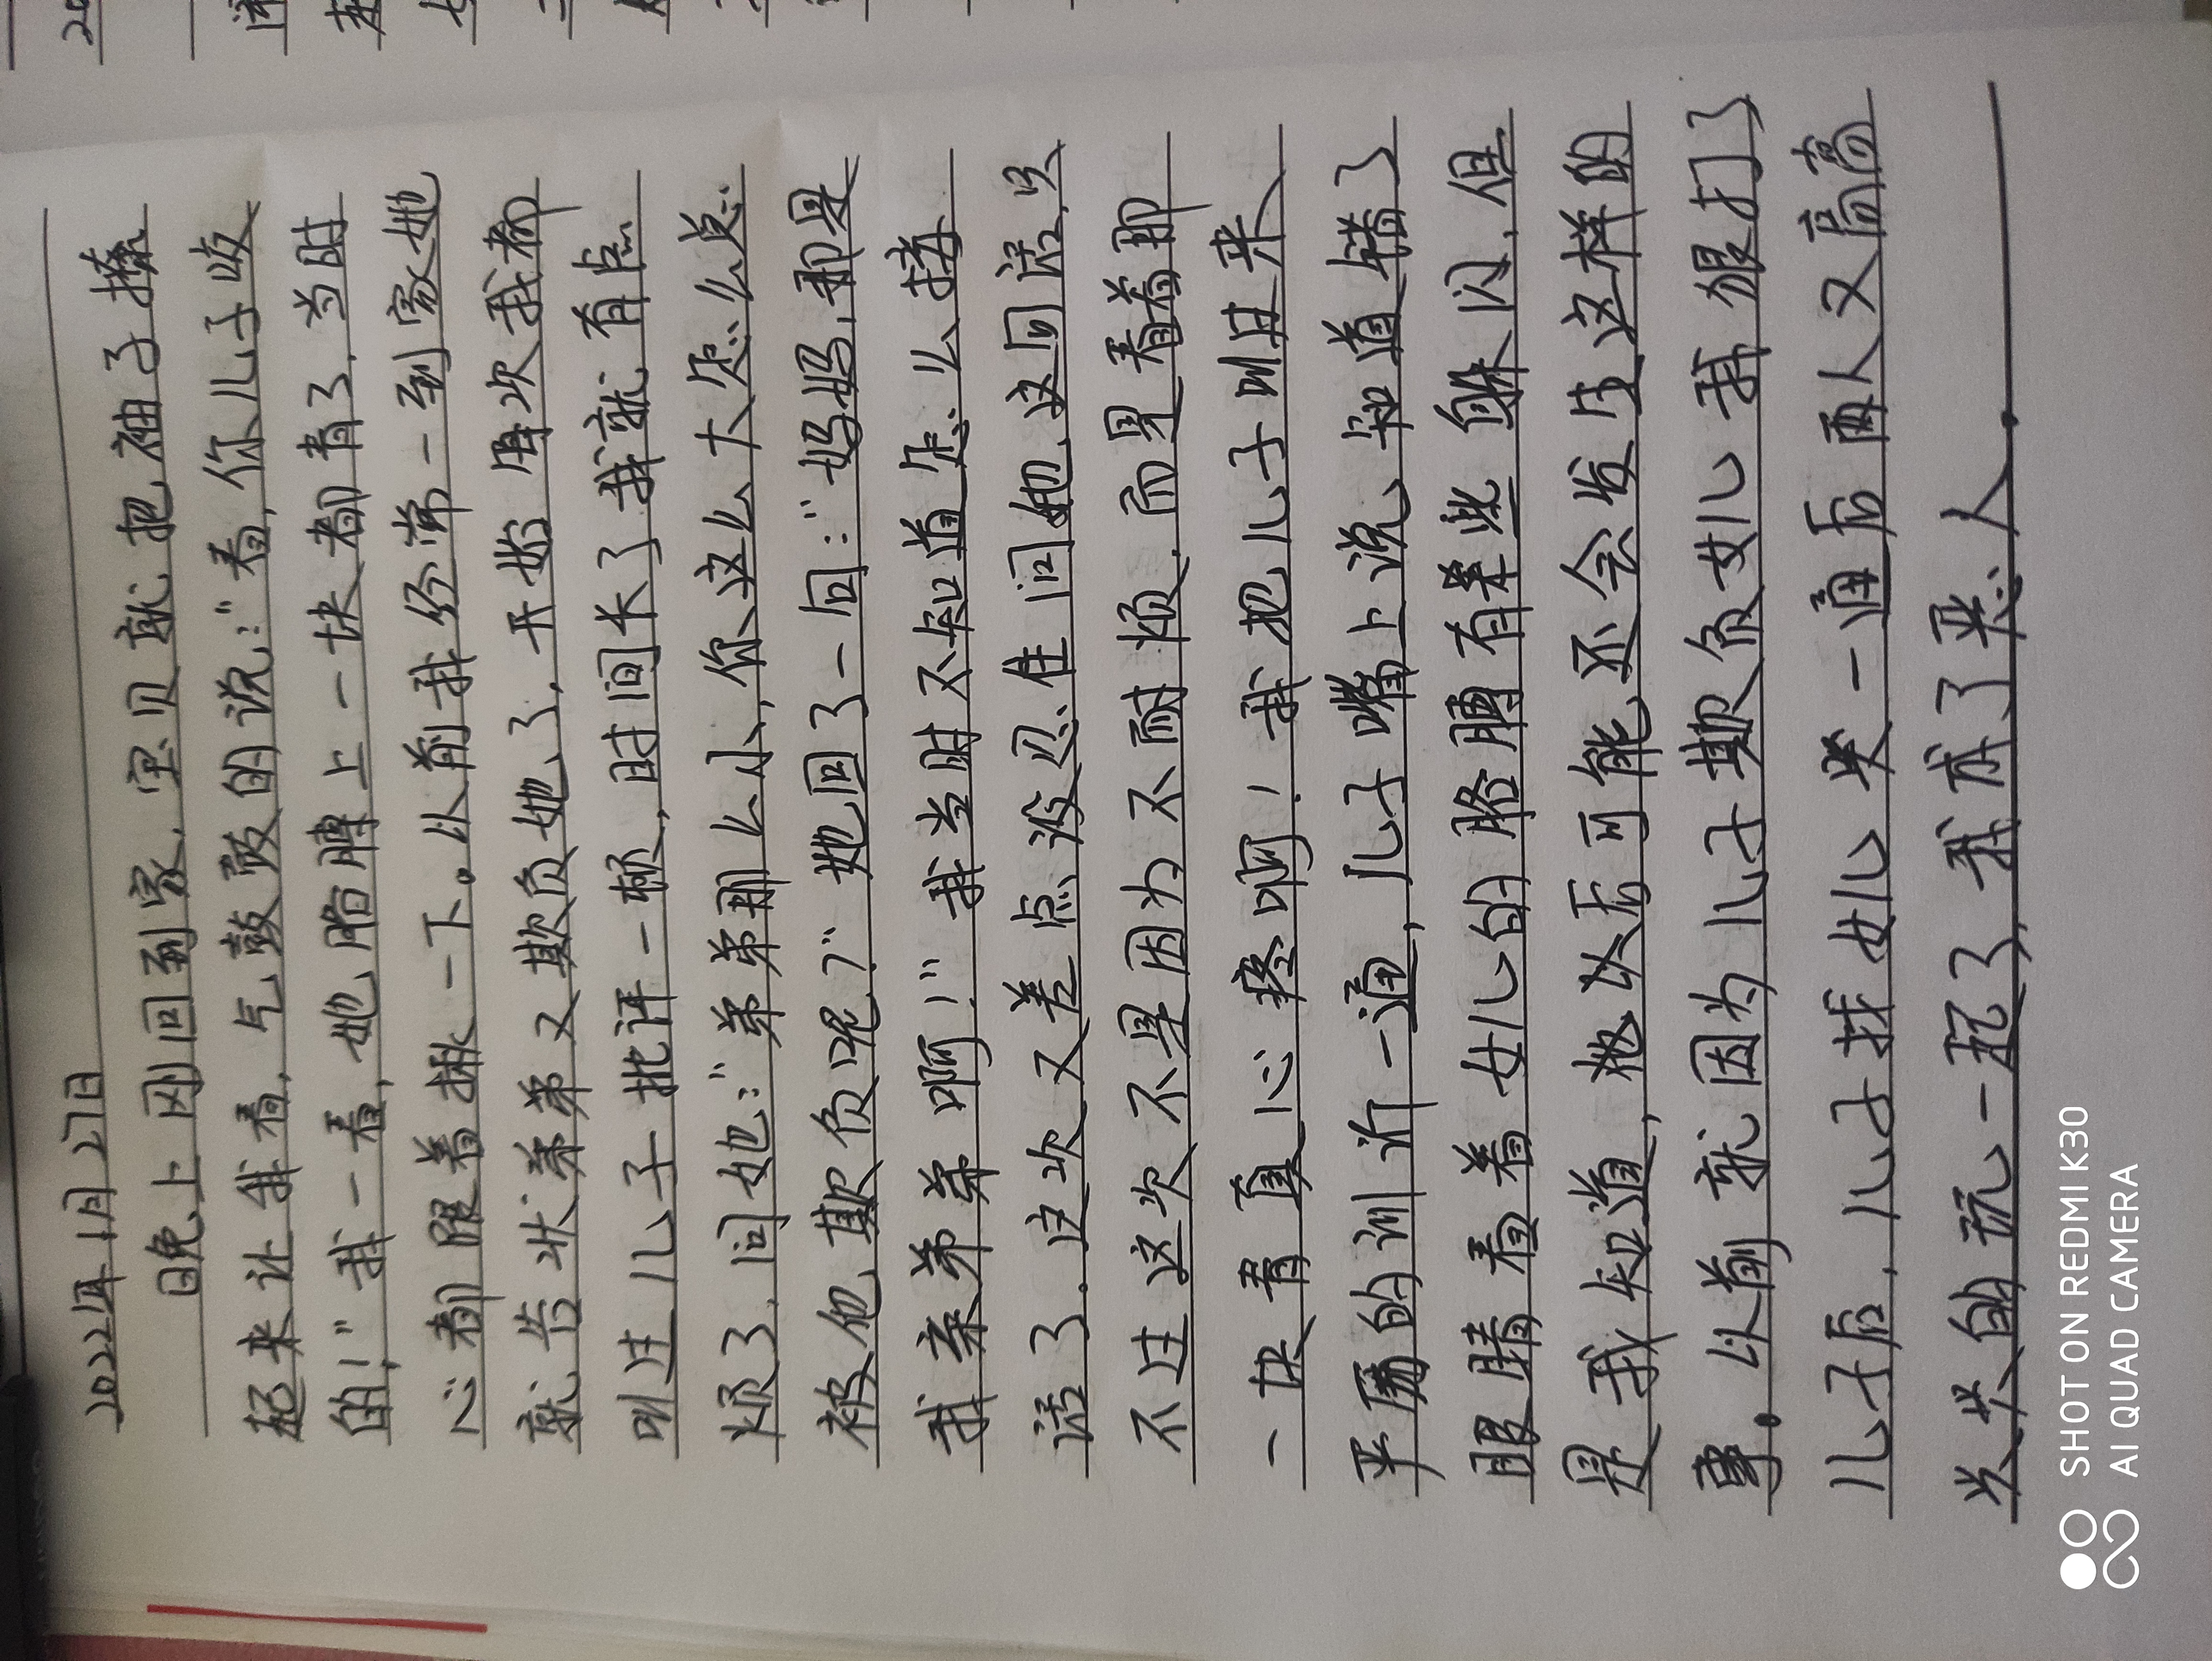 2022年1月27日
晚上刚回到家,宝贝就把袖子撸
起来让我看,气鼓鼓的说:"看,你儿子咬
的!"我一看,她胳膊上一块都青了,当时
心都跟着揪一下。以前我经常一到家她
就告状弟弟又欺负她了,开始再次我都
吼过儿子批评一顿,时间长了我就有点
烦了,问她:"弟弟那么小,你这么大怎么总
被他欺负呢?"她回了一句:"妈妈,那是
我亲弟弟啊!"我当时不知道怎么接
话了.这次又差点没忍住问她这句话,只
不过这次不是因为不耐烦,而是看着那
一块青真心疼啊!我把儿子叫过来
严厉的训斥一通,儿子嘴上说知道错了
眼睛看着女儿的胳膊有某些躲闪,但
是我知道,他以后可能还会发生这样的
事。以前就因为儿子欺负女儿我狠打了
儿子后,儿子找女儿哭一通后两人又高高
兴兴的玩一起了,我成了恶人.
SHOT ON REDMI K30
AI QUAD CAMERA